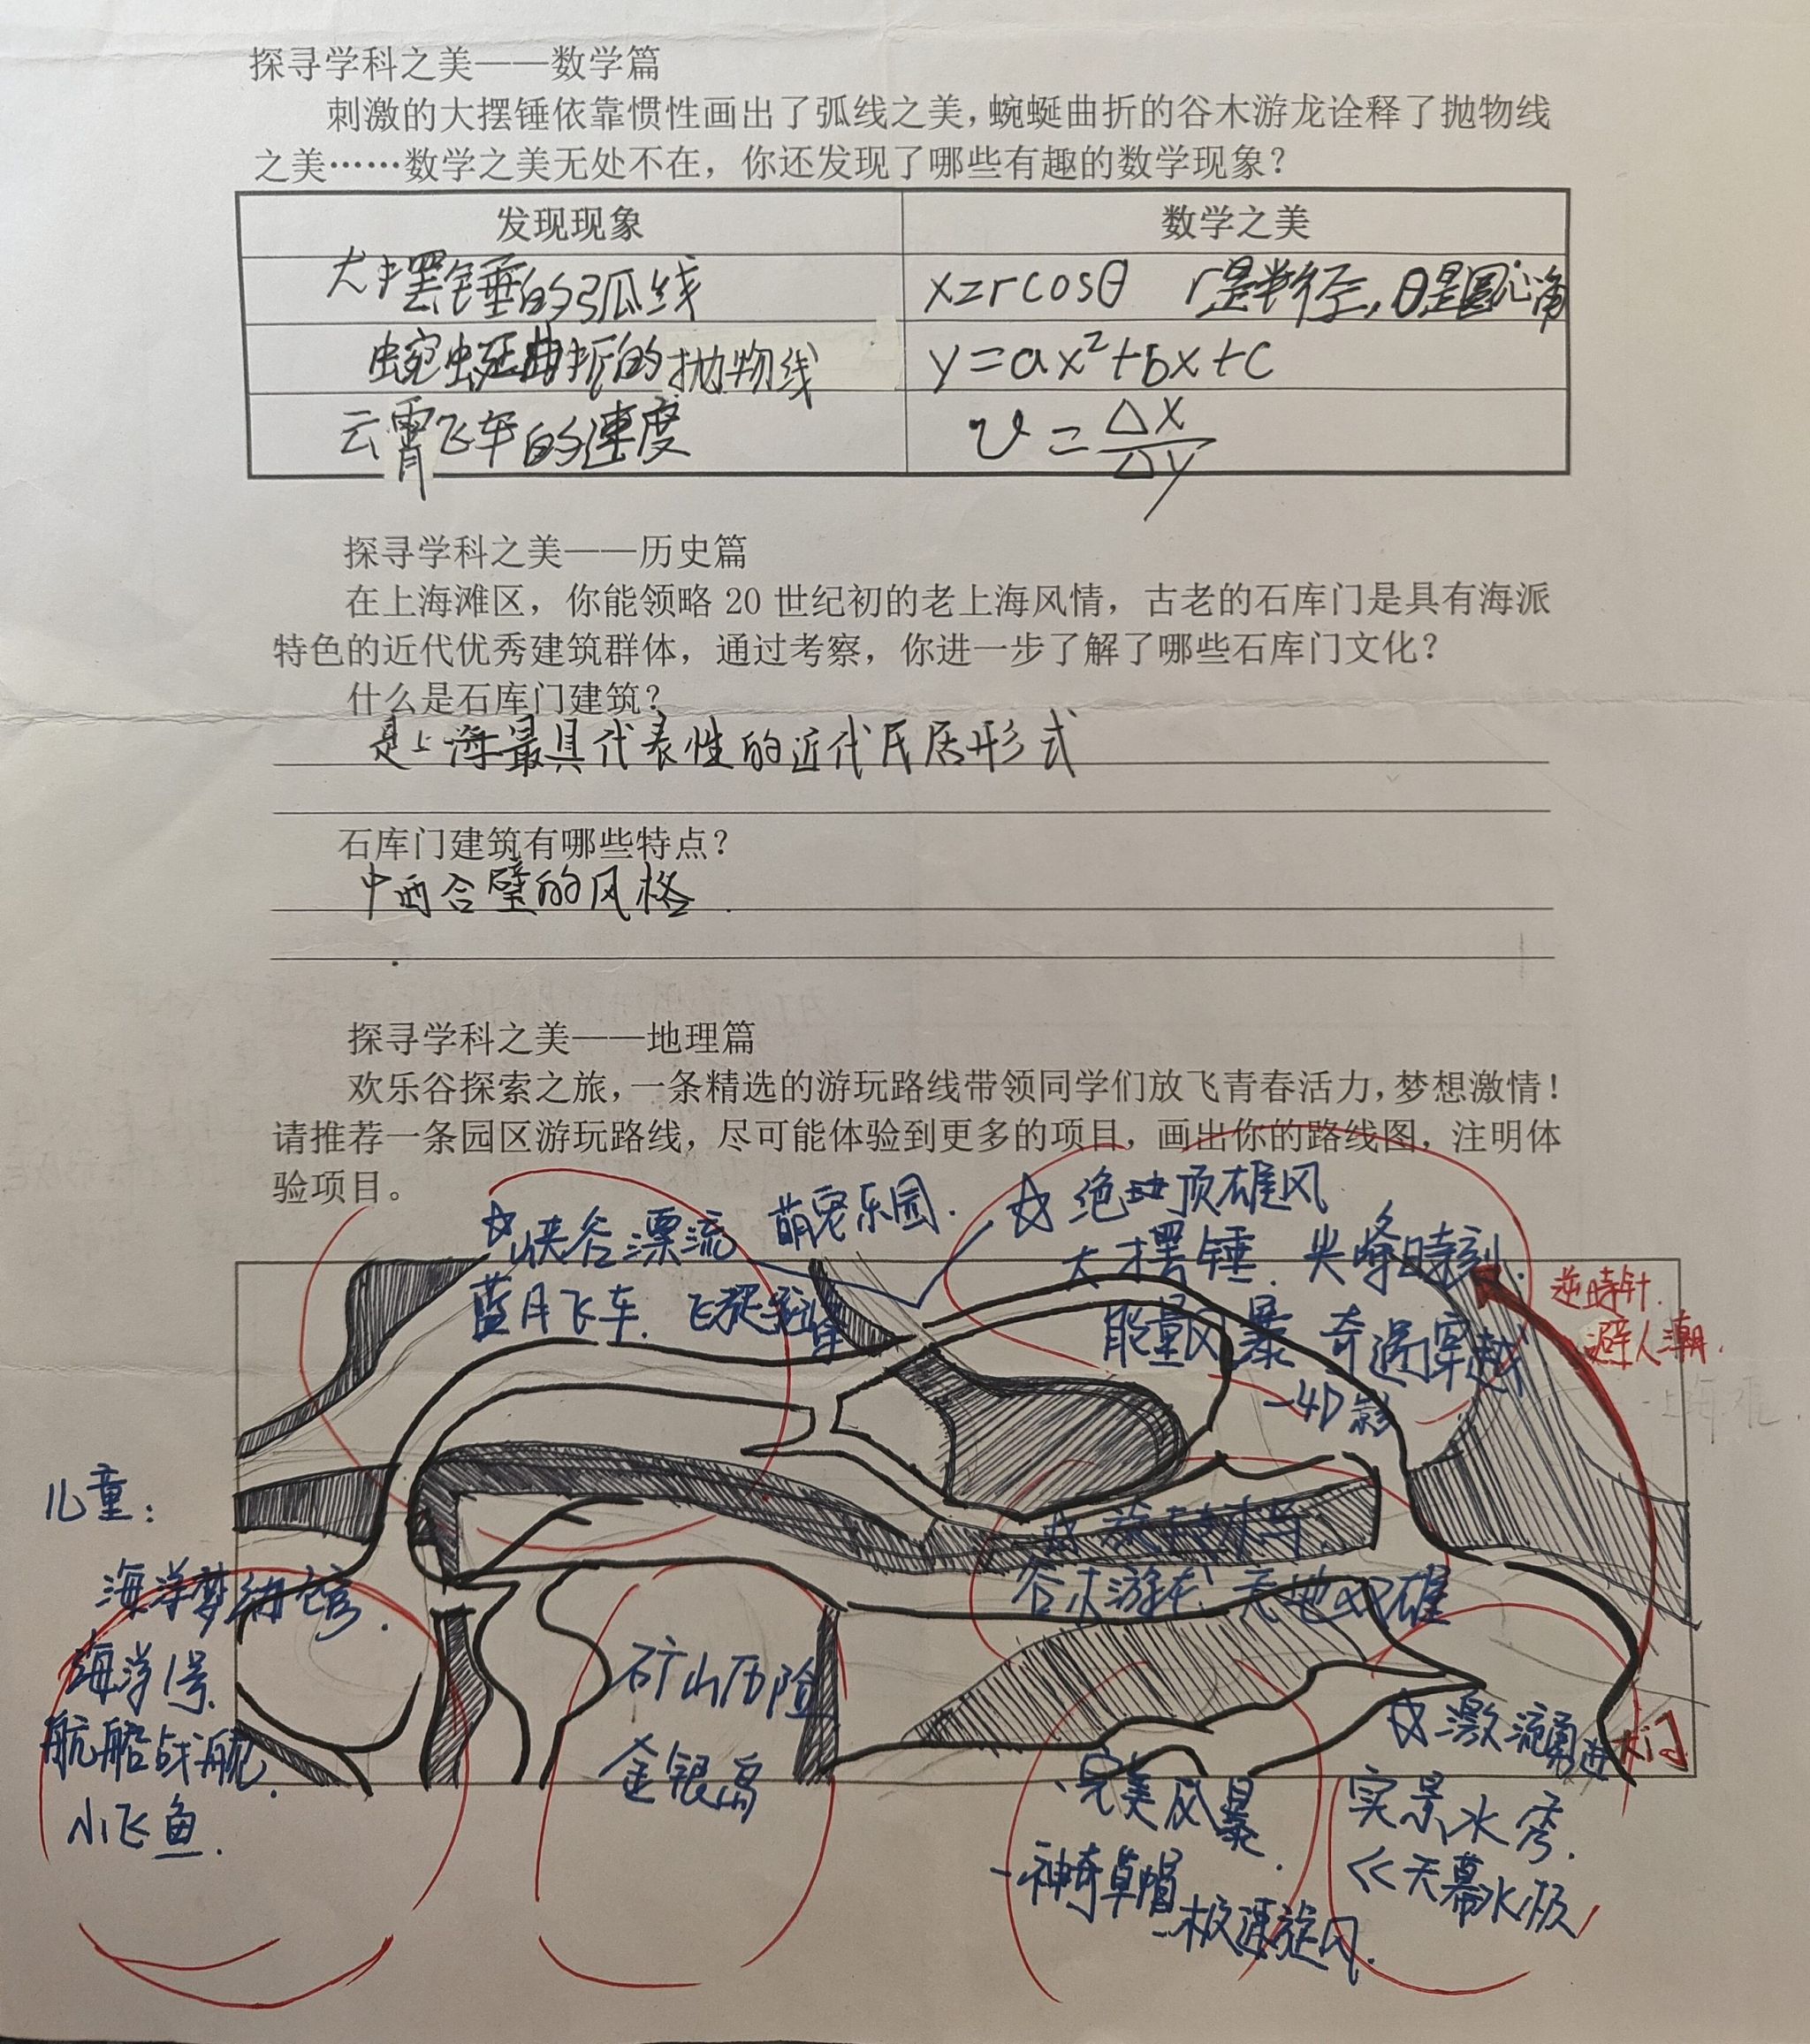 探寻学科之美——数学篇
刺激的大摆锤依靠惯性画出了弧线之美，蜿蜒曲折的谷木游龙诠释了抛物线
之美……数学之美无处不在，你还发现了哪些有趣的数学现象？
发现现象 数学之美
大摆锤的弧线 x=rcosθ r是半径,θ是圆心角
蜿蜒曲折的抛物线 y=ax²+bx+c
云霄飞车的速度 v=Δx/Δy
探寻学科之美——历史篇
在上海滩区，你能领略 20 世纪初的老上海风情，古老的石库门是具有海派
特色的近代优秀建筑群体，通过考察，你进一步了解了哪些石库门文化？
什么是石库门建筑？
是上海最具代表性的近代民居形式
石库门建筑有哪些特点？
中西合璧的风格.
探寻学科之美——地理篇
欢乐谷探索之旅，一条精选的游玩路线带领同学们放飞青春活力，梦想激情！
请推荐一条园区游玩路线，尽可能体验到更多的项目，画出你的路线图，注明体
验项目。
☆峡谷漂流 萌宠乐园. ☆绝顶雄风
大摆锤. 尖峰時刻.
蓝月飞车.
逆時針.
避人潮.
能量风暴 奇遇穿越
-4D影
上海滩.
儿童：
☆旋转木马.
谷木游龙 天地双雄
海洋梦纳馆.
海洋1号
航船战舰.
小飞鱼.
矿山历险
金银岛
☆激流勇进
大门
完美风暴.
-神奇草帽
-极速旋风.
实景水秀.
《天幕水极